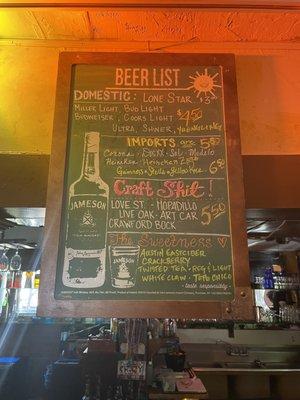 BEER LIST
DOMESTIC: LONE STAR $3
MILLER LIGHT, BUD LIGHT
BUDWEISER, COORS LIGHT $4.50
ULTRA, SHINER, YUENGLING
IMPORTS are 5.50
Corona · Dos XX · Sol · Modelo
Heineken · Heineken Zero 6.50
Guinness · Stella
Craft Shit!
LOVE ST. · HOPADILLO
LIVE OAK · ART CAR 5.50
CRAWFORD BOCK
The Sweetness
AUSTIN EASTCIDER
CRACKBERRY
TWISTED TEA · REG & LIGHT
WHITE CLAW · TOPO CHICO
taste responsibly.
JAMESON
JAMESON